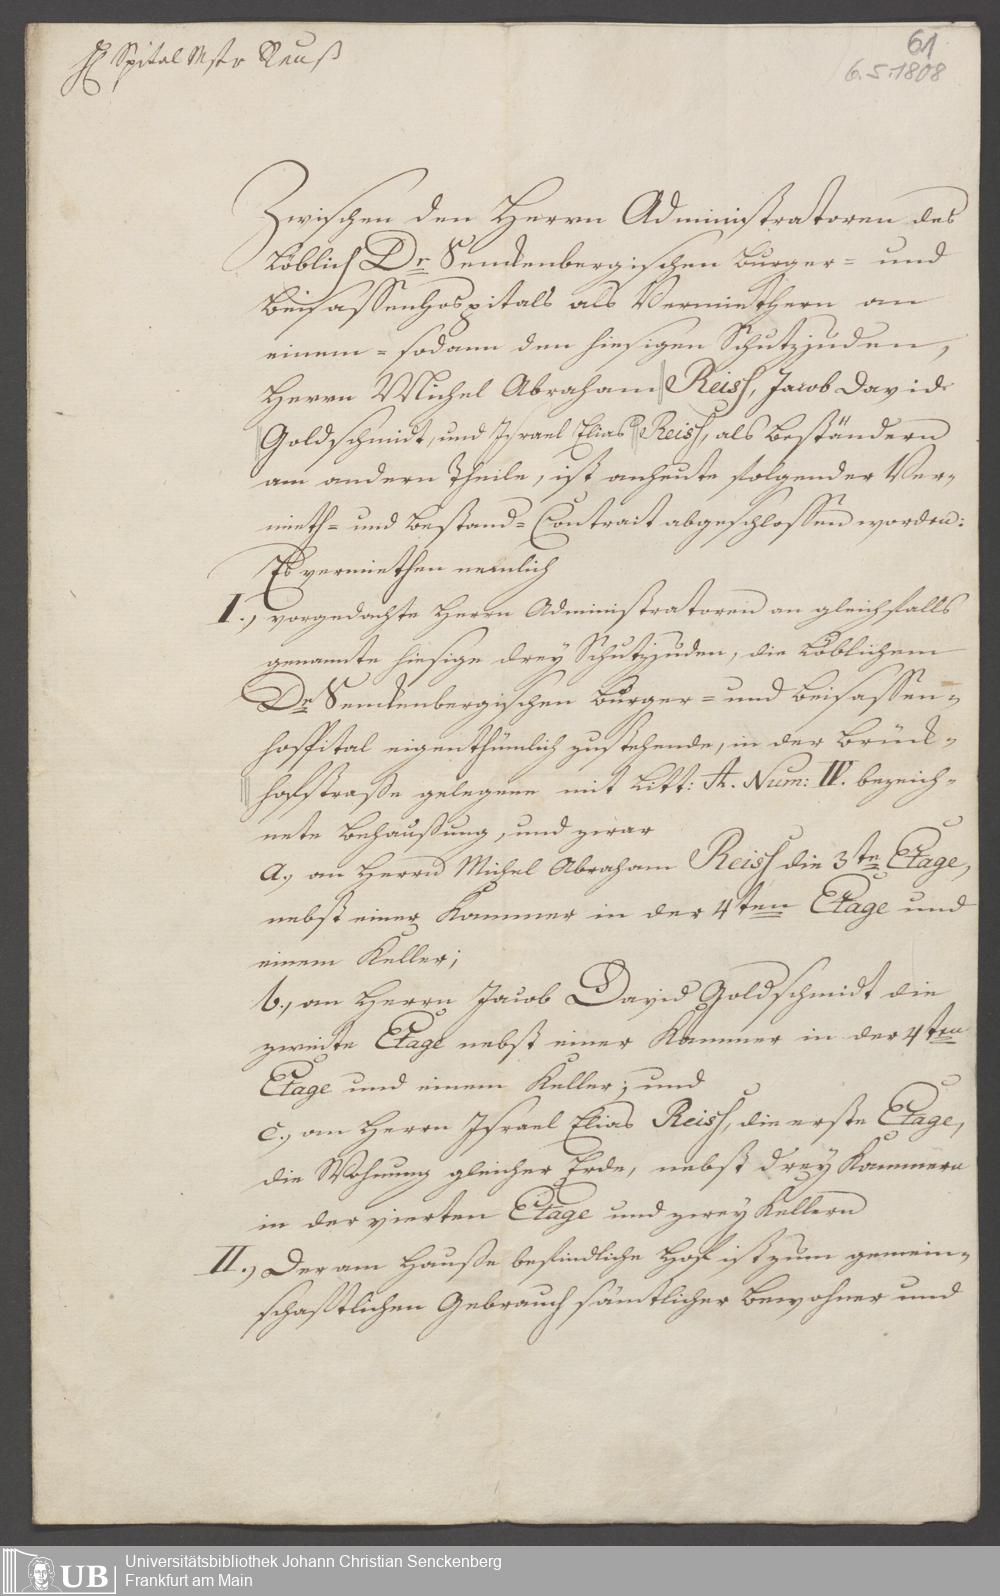 H Spital Mstr Reuß
61
6.5.1808
Zwischen den Herrn Administratoren des
Löblich Dr Senckenbergischen Burger- und
Beisassenhospitals als Vermiethern an
einem - sodann den hiesigen Schutzjuden,
Herrn Michel Abraham Reiss, Jacob David
Goldschmidt, und Israel Elias Reiss, als Beständern
am andern Theile, ist anheute folgender Ver-
mieth- und Bestand- Contract abgeschlossen worden:
Es vermiethen nemlich
I.) vorgedachte Herrn Administratoren an gleichfalls
genannte hiesige drey Schutzjuden, die Löblichem
Dr Senckenbergischen Bürger- und Beisassen-
hospital eigenthümlich zustehende, in der Brück-
hofstraße gelegene mit Litt: A. Num: IV. bezeich-
nete Behaußung, und zwar
a., an Herrn Michel Abraham Reiss die 3te Etage,
nebst einer Kammer in der 4ten Etage und
einem Keller;
b., an Herrn Jacob David Goldschmidt die
zweite Etage nebst einer Kammer in der 4ten
Etage und einem Keller; und
c., an Herrn Israel Elias Reiss, die erste Etage,
die Wohnung gleicher Erde, nebst drey Kammern
in der vierten Etage und zwey Kellern
II.) Der am Hauße befindliche Hof ist zum gemein-
schaftlichen Gebrauch sämtlicher Bewohner und
UB
Universitätsbibliothek Johann Christian Senckenberg
Frankfurt am Main